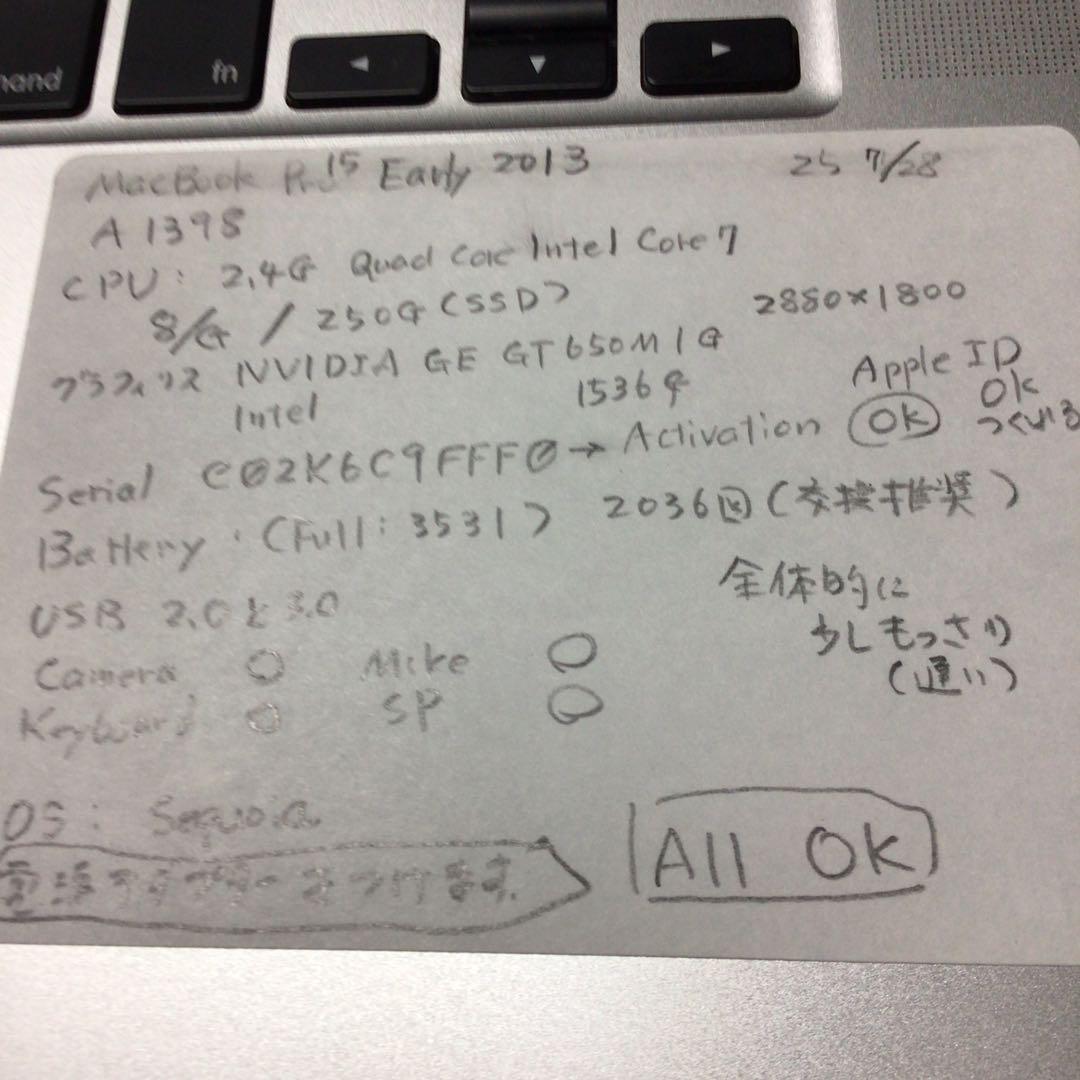 hand
fn
MacBook Pro 15 Early 2013 25 7/28
A1398
CPU: 2.4G Quad Core Intel Core 7
8/G / 250G (SSD) 2880×1800
グラフィックス NVIDIA GE GT 650M 1G
Intel 1536G
Apple ID
OK
Serial C02K6C9FFF0 → Activation OK
Battery: (Full: 3531) 2036回 (交換推奨)
USB 2.0と3.0
全体的に
少しもっさり
Camera ○ Mike ○
Keyboard ○ SP ○
OS: Sequoia
All OK